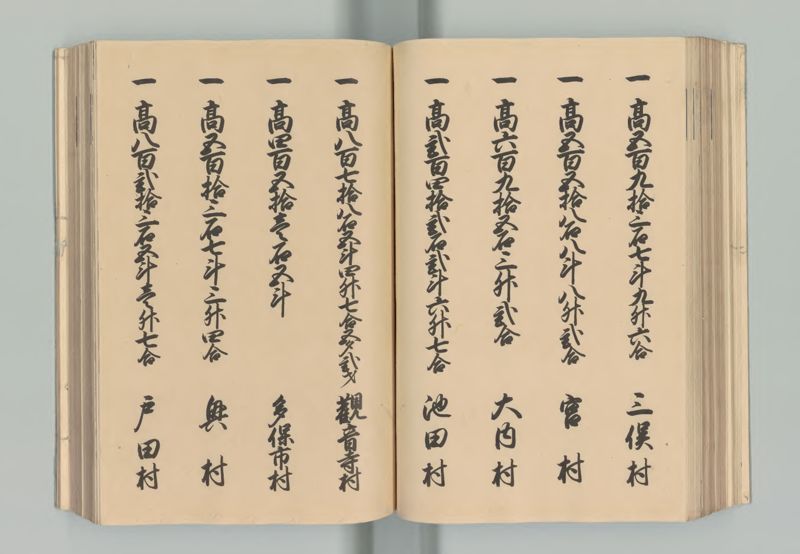 一高五百九拾三石七斗九升六合 三俣村
一高五百五拾八石八斗八升弐合 宮村
一高六百九拾五石三升弐合 大内村
一高弐百四拾弐石弐斗六升七合 池田村
一高八百七拾八石五斗四升七合五夕弐才 觀音寺村
一高四百五拾壱石五斗 多保市村
一高五百拾三石七斗三升四合 興村
一高八百弐拾三石五斗壱升七合 戸田村